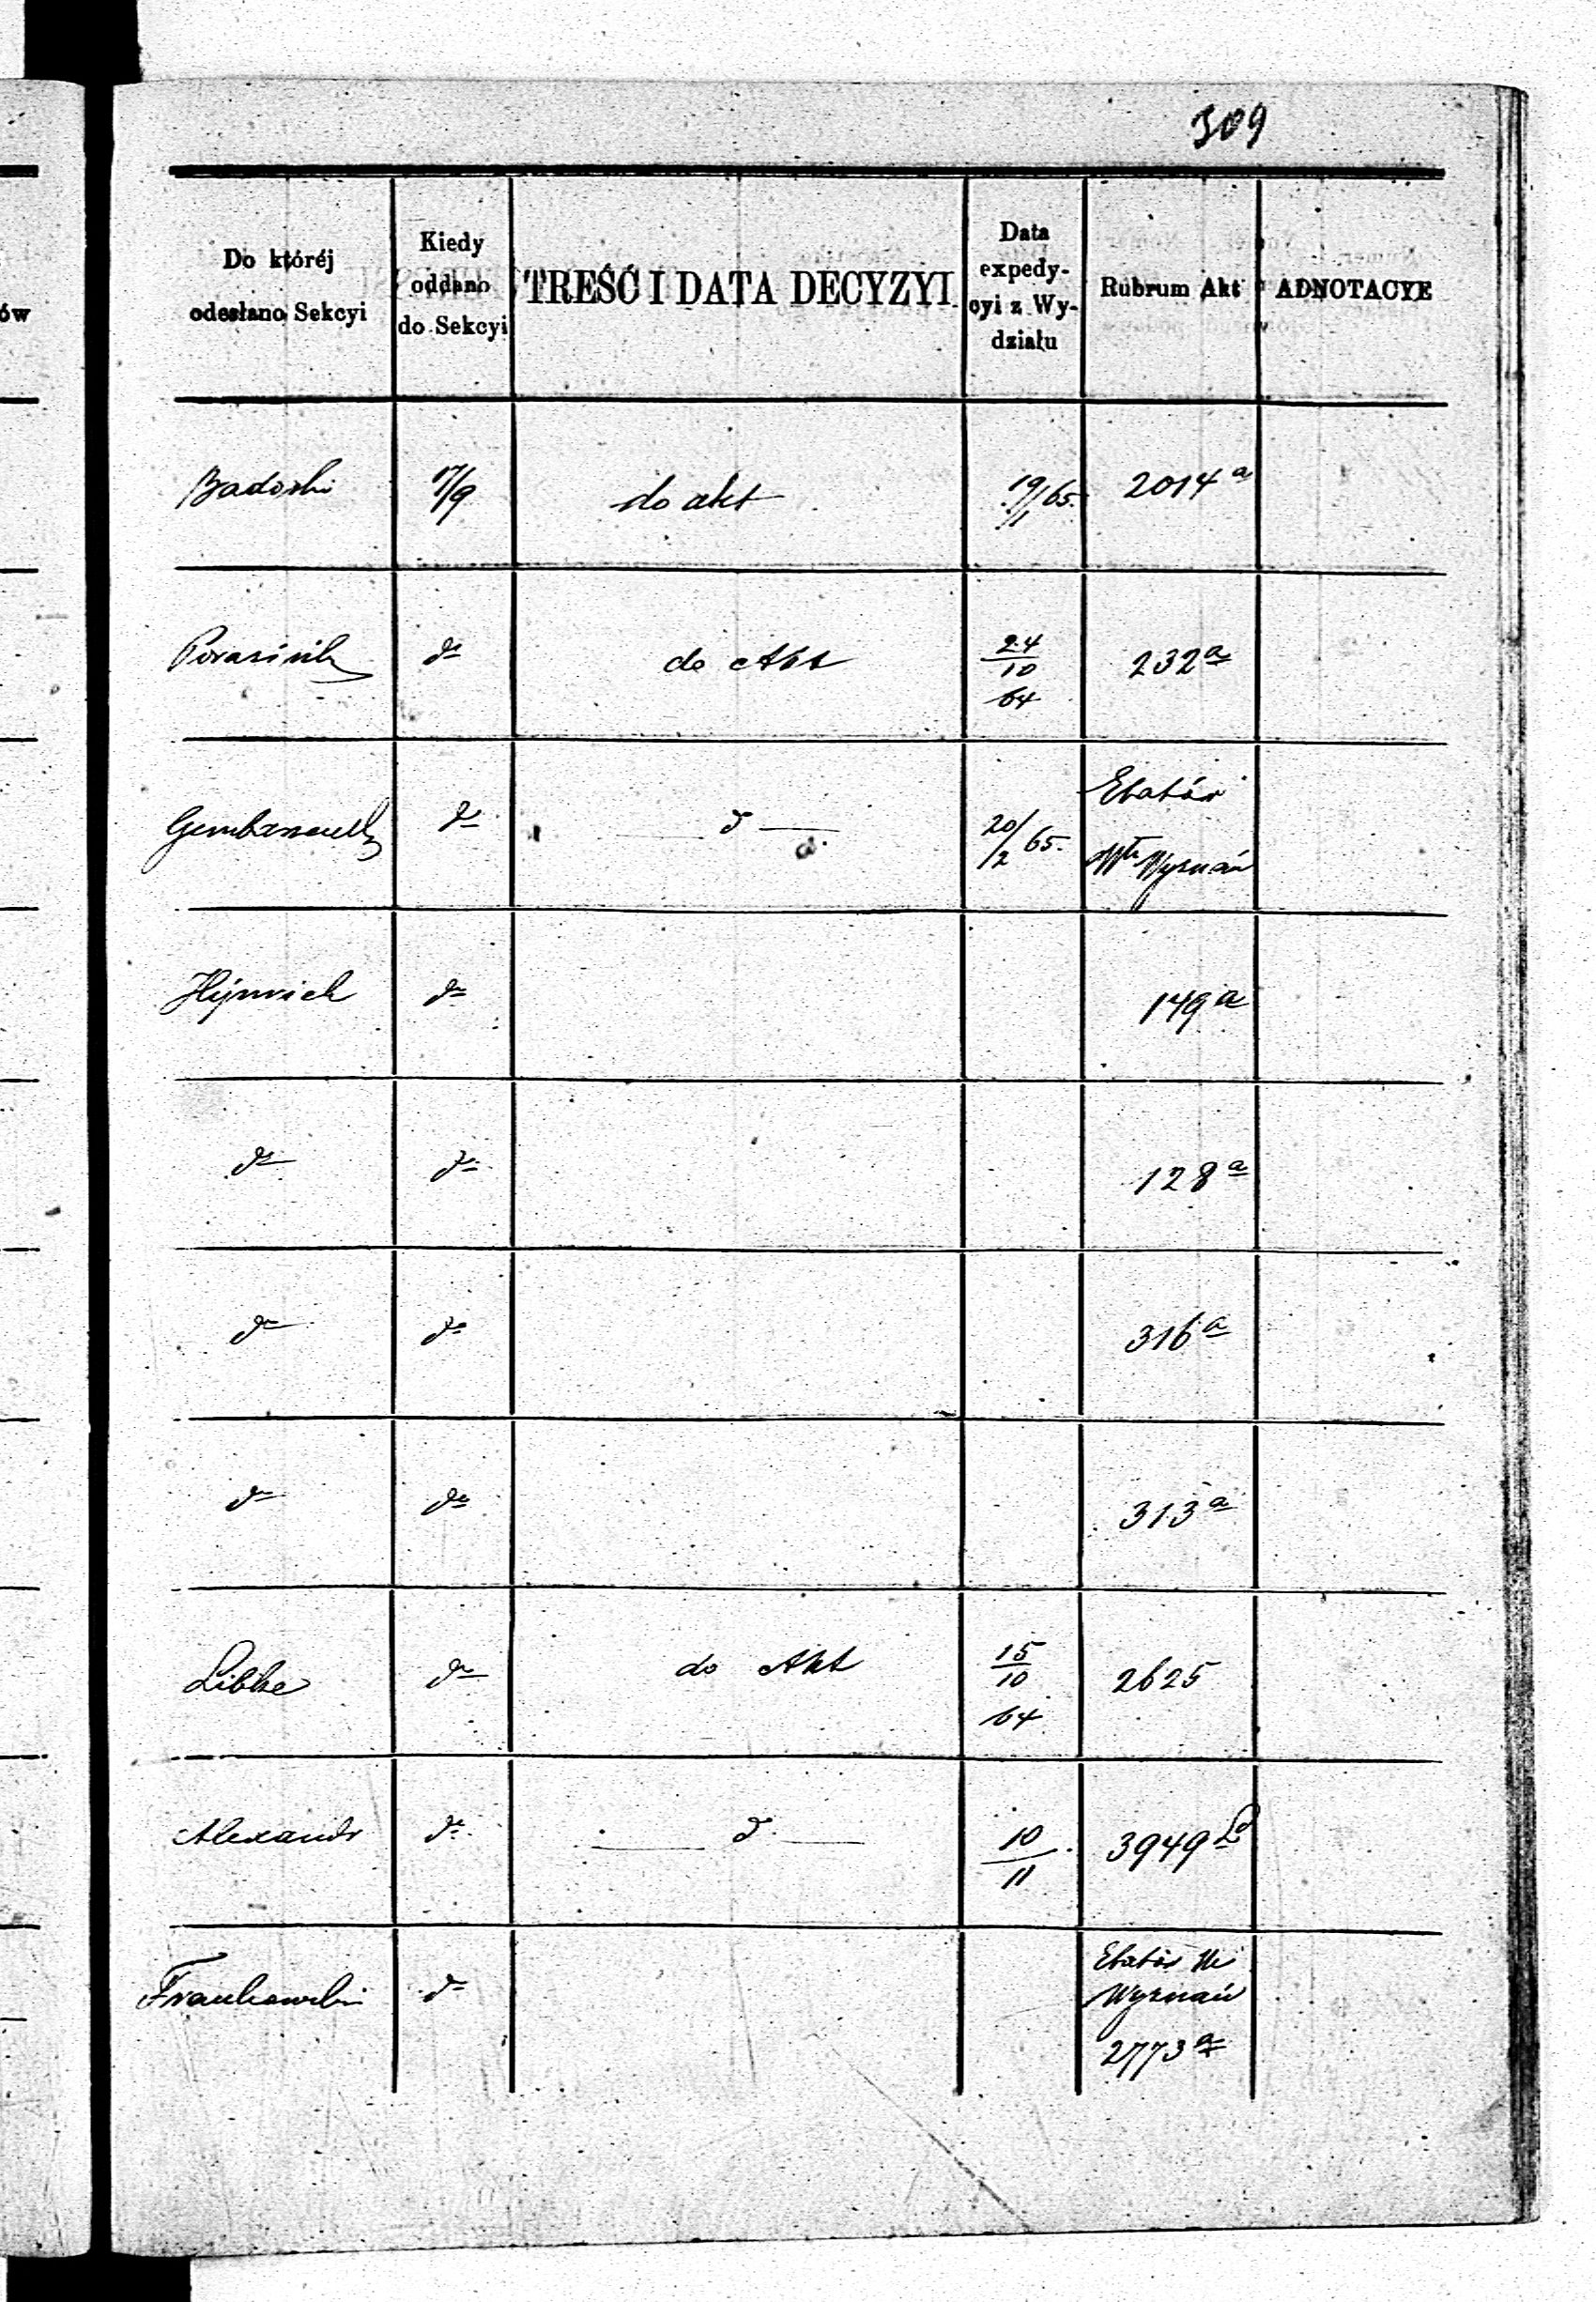 309
ów
Do któréj
odesłano Sekcyi
Kiedy
oddano
do Sekcyi
TREŚĆ I DATA DECYZYI
Data
expedy-
cyi z Wy-
działu
Rubrum Akt
ADNOTACYE
Badoski 17/9 do akt 19/1 65. 2014 a
do do Akt 24/10 64 232 a
do d 20/2 65. Etatów
Wyznań
do 149 a
do do 128 a
do do 316 a
do do 313 a
Libke do do Akt 15/10 64 2625
Alexandr do d 10/11 3949
Frankowski do Etatów
Wyznań
2773 a